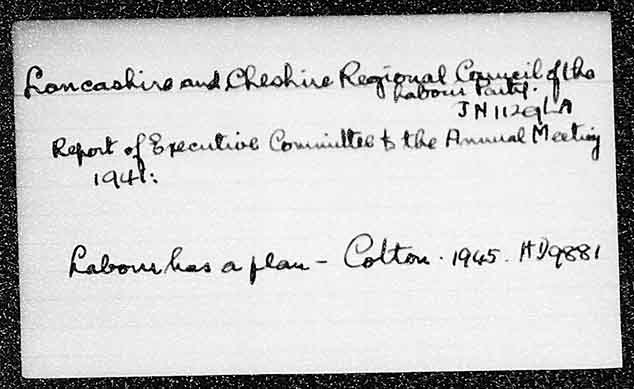 Lancashire and Cheshire Regional Council of the
Labour Party.
JN1129LA
Report of Executive Committee to the Annual Meeting
1941:
Labour has a plan - Cotton. 1945. HD9881